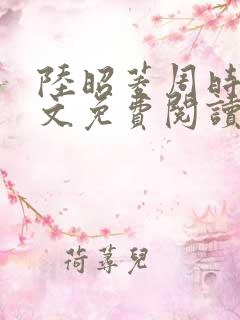 陸昭菱周時
文免費閱讀
荷蓴兒